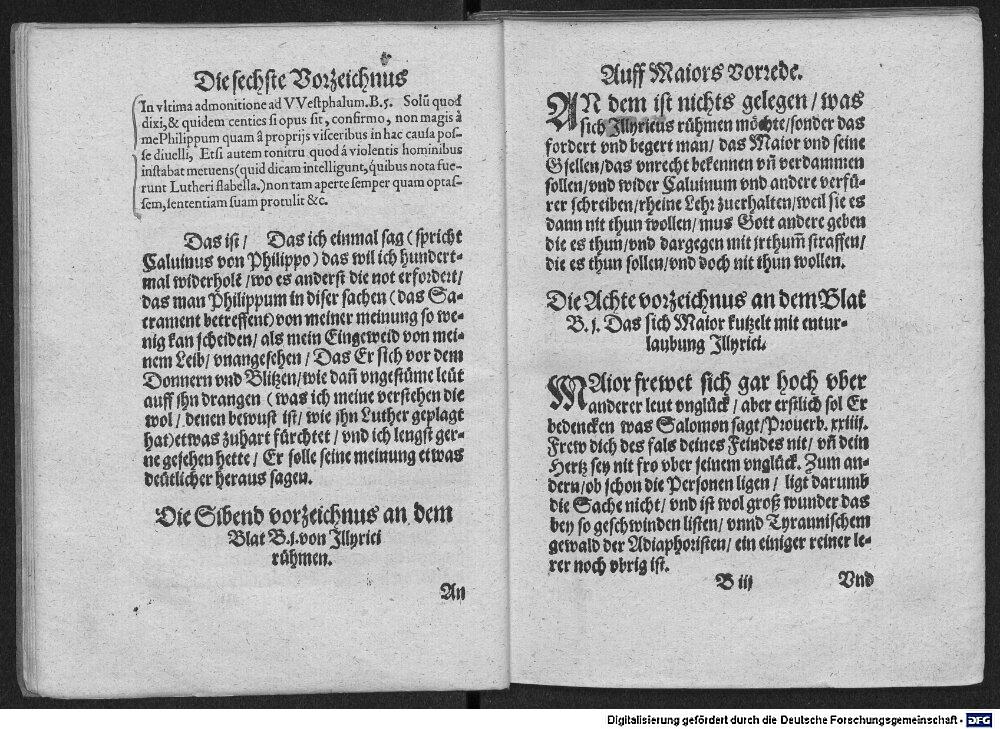 Die sechste Vorzeichnus
In vltima admonitione ad VVestphalum. B. 5. Solũ quod
dixi, & quidem centies si opus sit, confirmo, non magis à
me Philippum quam â proprijs visceribus in hac causa pos-
se diuelli, Etsi autem tonitru quod á violentis hominibus
instabat metuens (quid dicam intelligunt, quibus nota fue-
runt Lutheri flabella.) non tam aperte semper quam optas-
sem, sententiam suam protulit &c.
Das ist / Das ich einmal sag (spricht
Caluinus von Philippo) das wil ich hundert-
mal widerholẽ / wo es anderst die not erfordert /
das man Philippum in diser sachen (das Sa-
crament betreffent) von meiner meinung so we-
nig kan scheiden / als mein Eingeweid von mei-
nem Leib / vnangesehen / Das Er sich vor dem
Donnern vnd Blitzen / wie dañ vngestüme leüt
auff jhn drangen (was ich meine verstehen die
wol / denen bewust ist / wie jhn Luther geplagt
hat) etwas zuhart fürchtet / vnd ich lengst ger-
ne gesehen hette / Er solle seine meinung etwas
deütlicher heraus sagen.
Die Sibend vorzeichnus an dem
Blat B. 1. von Illyrici
rühmen.
An
Auff Maiors Vorrede.
AN dem ist nichts gelegen / was
sich Illyricus rühmen möchte / sonder das
fordert vnd begert man / das Maior vnd seine
Gsellen / das vnrecht bekennen vñ verdammen
sollen / vnd wider Caluinum vnd andere verfü-
rer schreiben / rheine Lehr zuerhalten / weil sie es
dann nit thun wollen / mus Gott andere geben
die es thun / vnd dargegen mit jrthum̃ straffen /
die es thun sollen / vnd doch nit thun wollen.
Die Achte vorzeichnus an dem Blat
B. j. Das sich Maior kutzelt mit entur-
laubung Illyrici.
MAior frewet sich gar hoch vber
anderer leut vnglück / aber erstlich sol Er
bedencken was Salomon sagt / Prouerb. xxiiij.
Frew dich des fals deines Feindes nit / vñ dein
Hertz sey nit fro vber seinem vnglück. Zum an-
dern / ob schon die Personen ligen / ligt darumb
die Sache nicht / vnd ist wol groß wunder das
bey so geschwinden listen / vnnd Tyrannischem
gewald der Adiaphoristen / ein einiger reiner le-
rer noch vbrig ist.
B iij Vnd
Digitalisierung gefördert durch die Deutsche Forschungsgemeinschaft - DFG